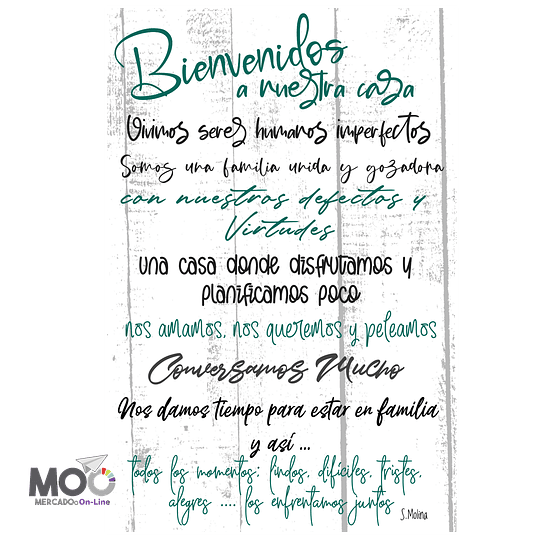 Bienvenidos
a nuestra casa
Vivimos seres humanos imperfectos
Somos una familia unida y gozadora
con nuestros defectos y
Virtudes
una casa donde disfrutamos y
planificamos poco
nos amamos, nos queremos y peleamos
Conversamos Mucho
Nos damos tiempo para estar en familia
y así ...
todos los momentos: lindos, difíciles, tristes,
alegres .... los enfrentamos juntos
S.Molina
MOO
MERCADOo On-Line